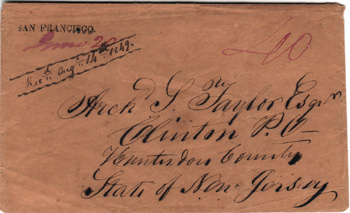 SAN FRANCISCO.
June 20
40
Rec'd. Aug. 14th. 1849.
Arch'd S. Taylor Esqr
Clinton P. O
Hunterdon County
State of New Jersey